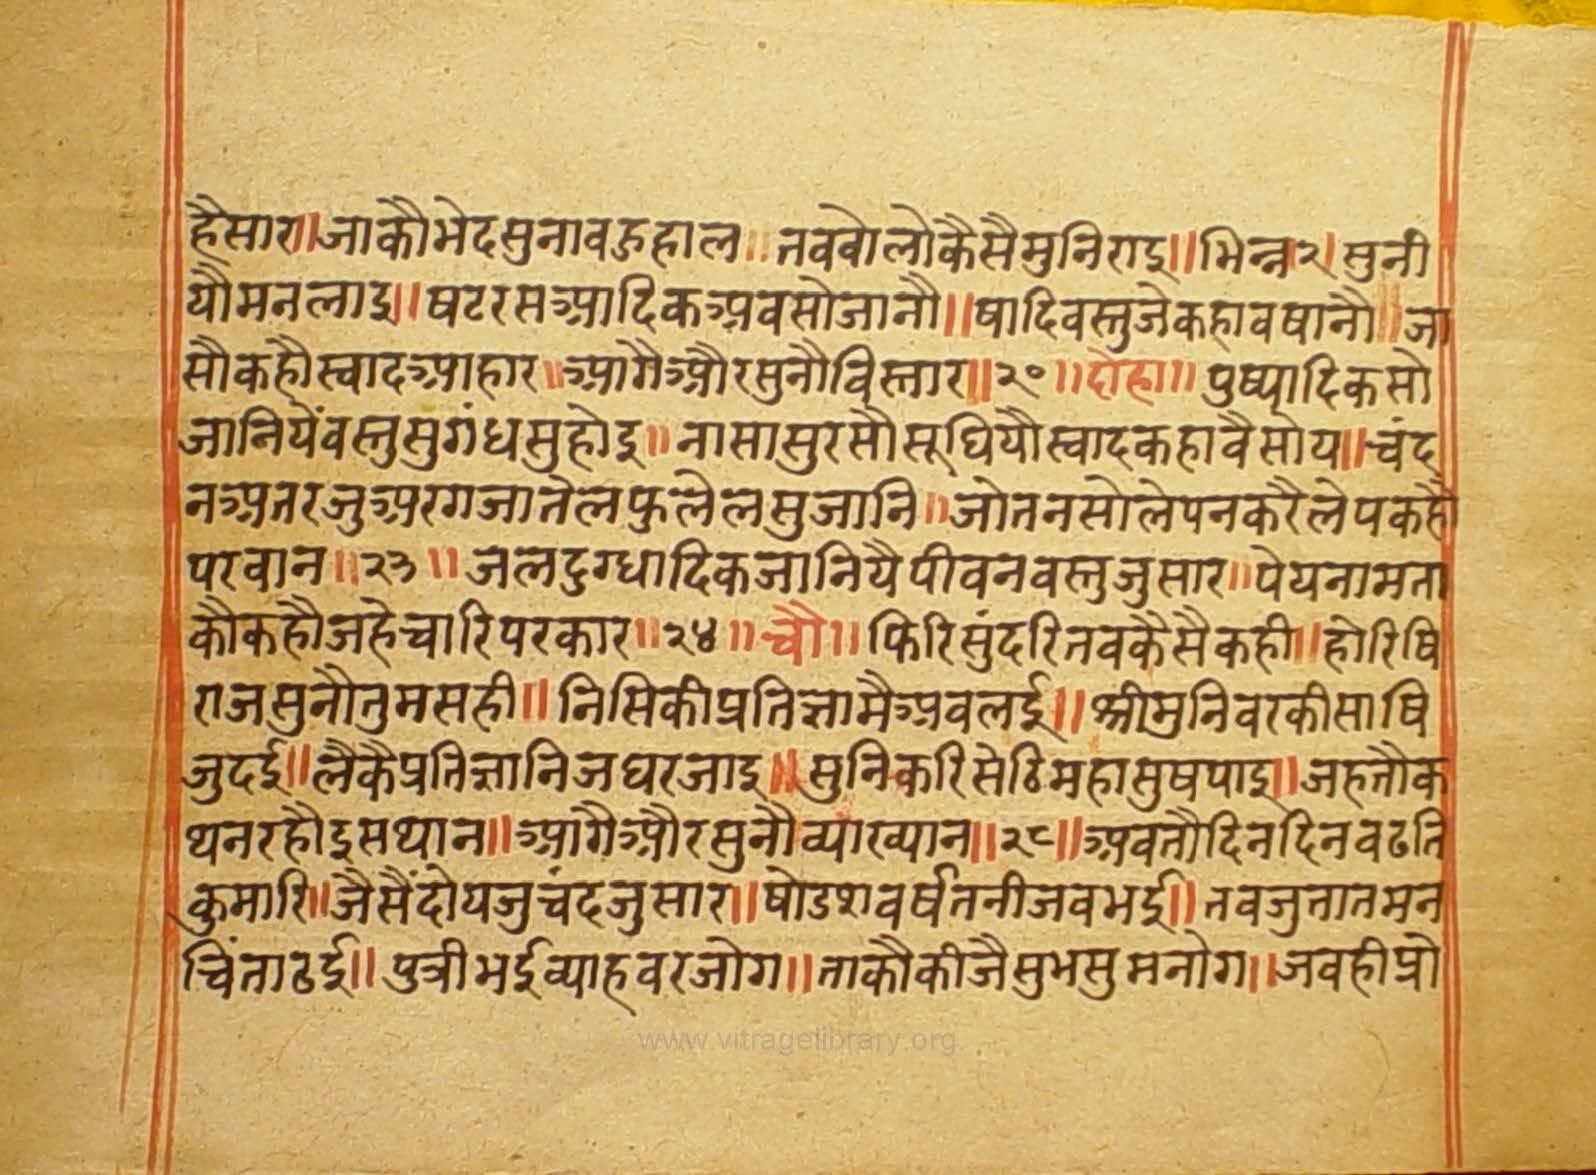 हैसार॥जाकौभेदसुनावहुहाल॥तवबोलोकैसैमुनिराइ॥भिन्न२।सुनी
यौमनलाइ॥षटरसआदिकअवसोजानौ॥षादिवस्तुजेकहावषानौ॥जा
सौकहौस्वादआहार॥आगैऔरसुनौविस्तार॥२०॥दोहा॥पुष्पादिकसो
जानियेंवस्तुसुगंधसुहोइ॥नासासुरसौसूघियौस्वादकहावैसोय॥चंद
नअतरजुअरगजातेलफुलेलसुजानि॥जोतनसोलेपनकरैलेपकहौ
परवान॥२३॥जलदुग्धादिकजानियैपीवनवस्तुजुसार॥पेयनामता
कौकहौजहेचारिपरकार॥२४॥चौ॥फिरिसुंदरितवकैसैकही॥होरिषि
राजसुनौतुमसही॥निसिकीप्रतिज्ञामैअवलई॥श्रीमुनिवरकीसाषि
जुदई॥लैकैप्रतिज्ञानिजघरजाइ॥सुनिकरिसेठिमहासुषपाइ॥जहतौक
थनरहौइसथान॥आगैऔरसुनौव्याख्यान॥२८॥अवतौदिनदिनवढति
कुमारि॥जैसैंदोयजुचंदजुसार॥षोडशवर्षतनीजवभई॥तवजुतातमन
चिंताठई॥पुत्रीभईव्याहवरजोग॥ताकौकीजैसुभसुमनोग॥जवहीप्रो
www.vitragelibrary.org